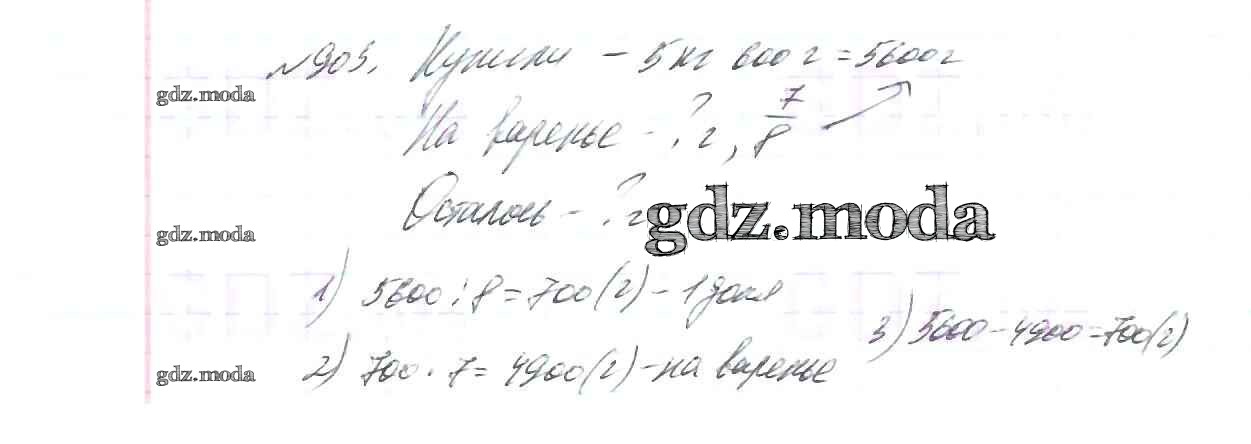 №903. Купили – 5 кг 600 г = 5600 г
gdz.moda
На варенье – ? г, 7/8
Осталось – ? г
gdz.moda
gdz.moda
1) 5600 : 8 = 700 (г) – 1 доля
2) 700 · 7 = 4900 (г) – на варенье
3) 5600 – 4900 = 700 (г)
gdz.moda